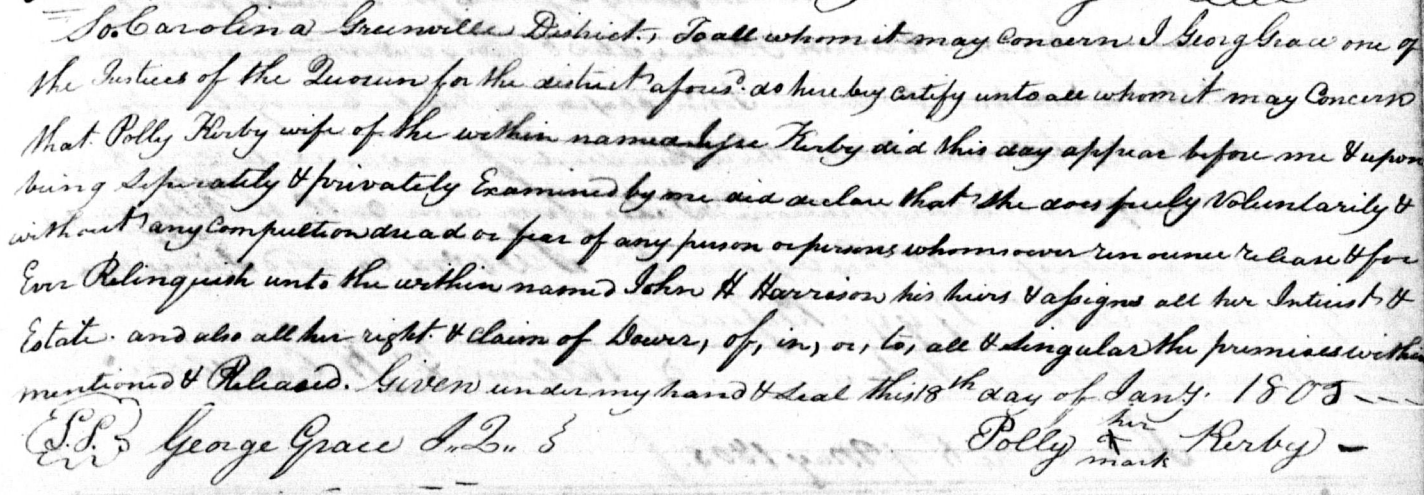 So. Carolina Greenville District., To all whom it may Concern I Georg Grace one of
the Justices of the Quorun for the district afores.d do hereby certify unto all whom it may Concern
that Polly Kerby wife of the within named Kerby did this day appear before me & upon
being Seperately & privately Examined by me did declare that she does freely Voluntarily &
without any Compultion dread or fear of any person or persons whomsoever renounce release & for
Ever Relinquish unto the within named John H Harrison his heirs & assigns all her Interest &
Estate. and also all her right & claim of Dower, of, in, or, to, all & Singular the premises within
mentioned & Released. Given under my hand & seal this 8th day of Jany. 1805
L.S. George Grace J.. Q.. Polly her x mark Kerby